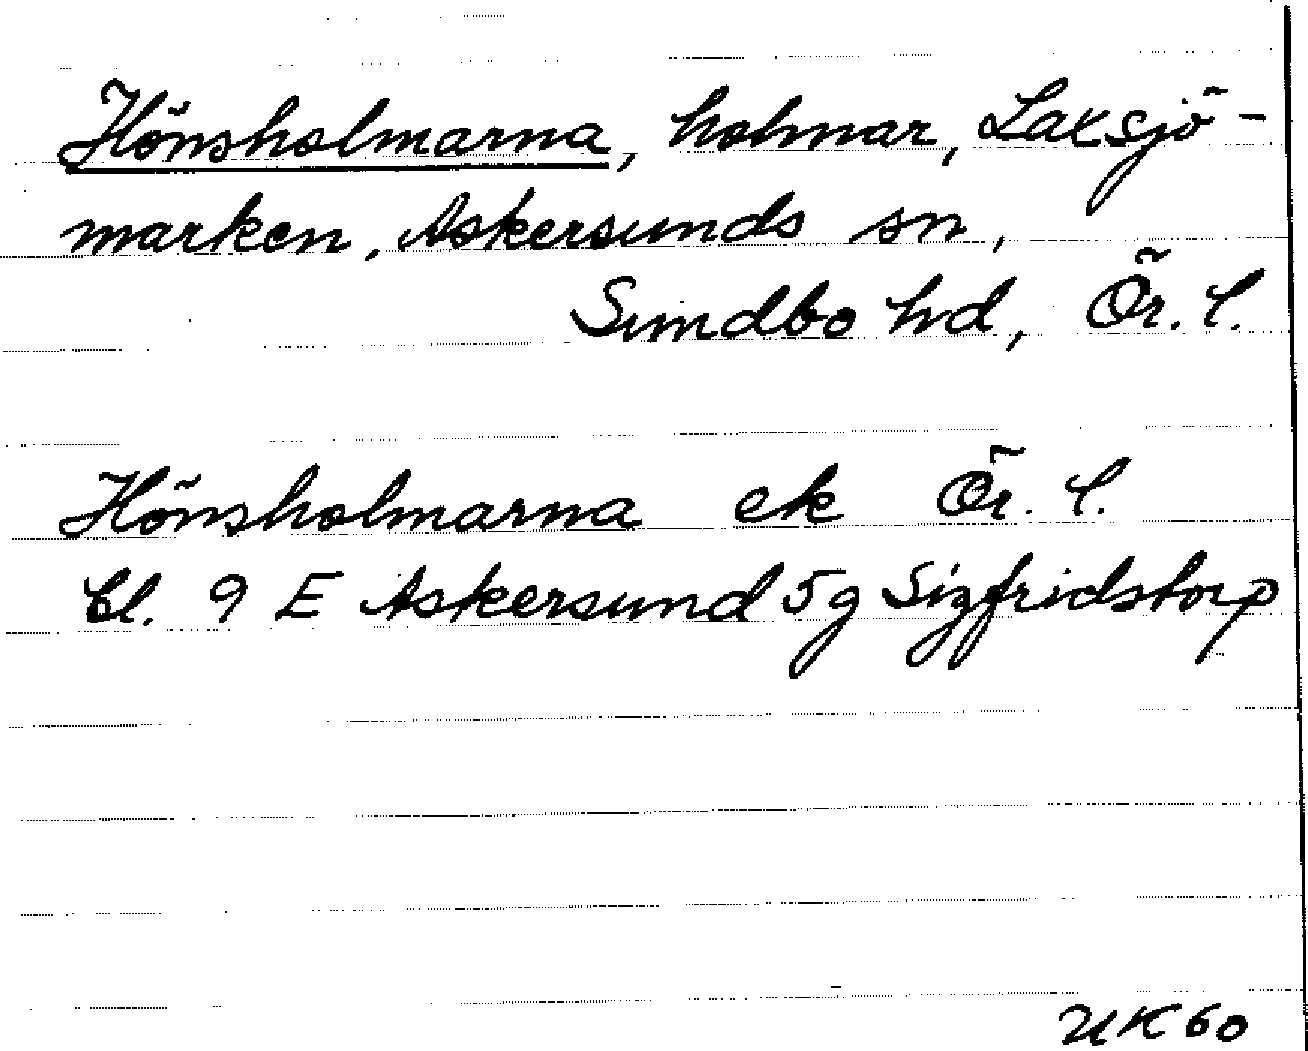 Hönsholmarna, holmar, Laxsjö-
marken, Askersunds sn,
Sundbo hd, Ör. l.
Hönsholmarna ek Ör. l.
bl. 9 E Askersund 5g Sigfridstorp
UK 60